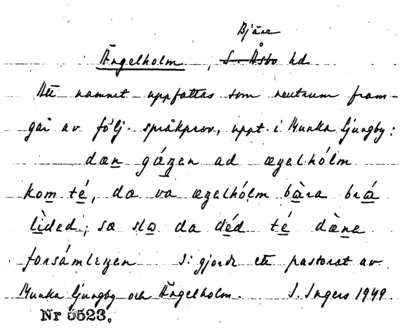 Bjäre
Ängelholm, S. Åsbo hd.
Att namnet uppfattas som neutrum fram-
går av följ. språkprov, uppt. i Munka Ljungby:
dæn gáŋen ad æŋelhólm
kom té, da va æŋelhólm bàra brá
lìded; sæ slo da déd té dæ̀ne
forsámliŋen ɔ: gjorde ett pastorat av
Munka Ljungby och Ängelholm. S. Ingers 1949
Nr 5523.